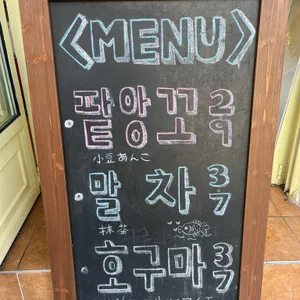 <MENU>
팥앙꼬 2/9
小豆あんこ
말차 3/7
抹茶
호구마 3/7